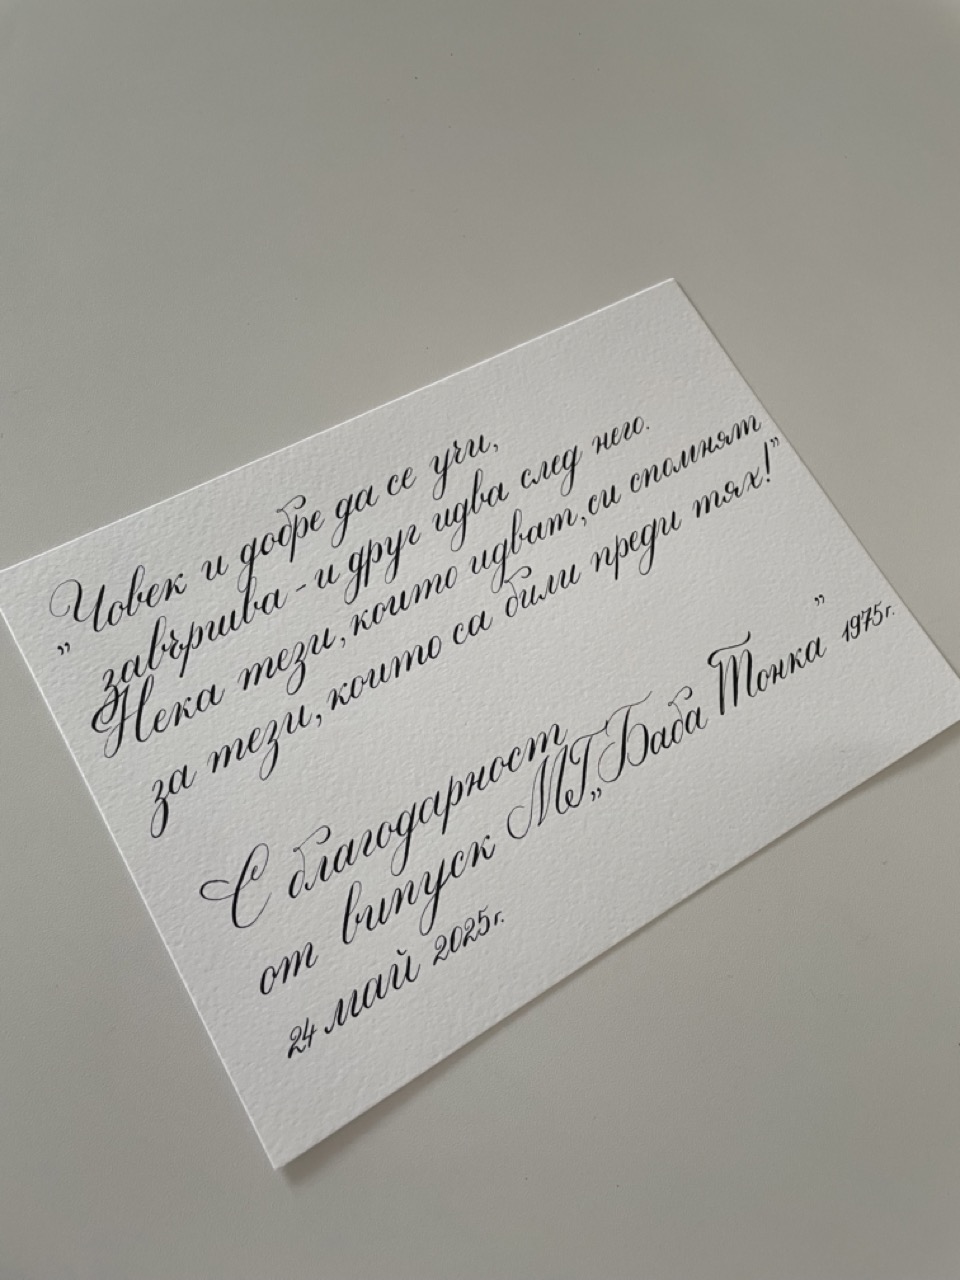 „Човек и добре да се учи,
завършва - и друг идва след него.
Нека тези, които идват, си спомнят
за тези, които са били преди тях!”
С благодарност
от випуск МГ „Баба Тонка” 1975г.
24 май 2025г.